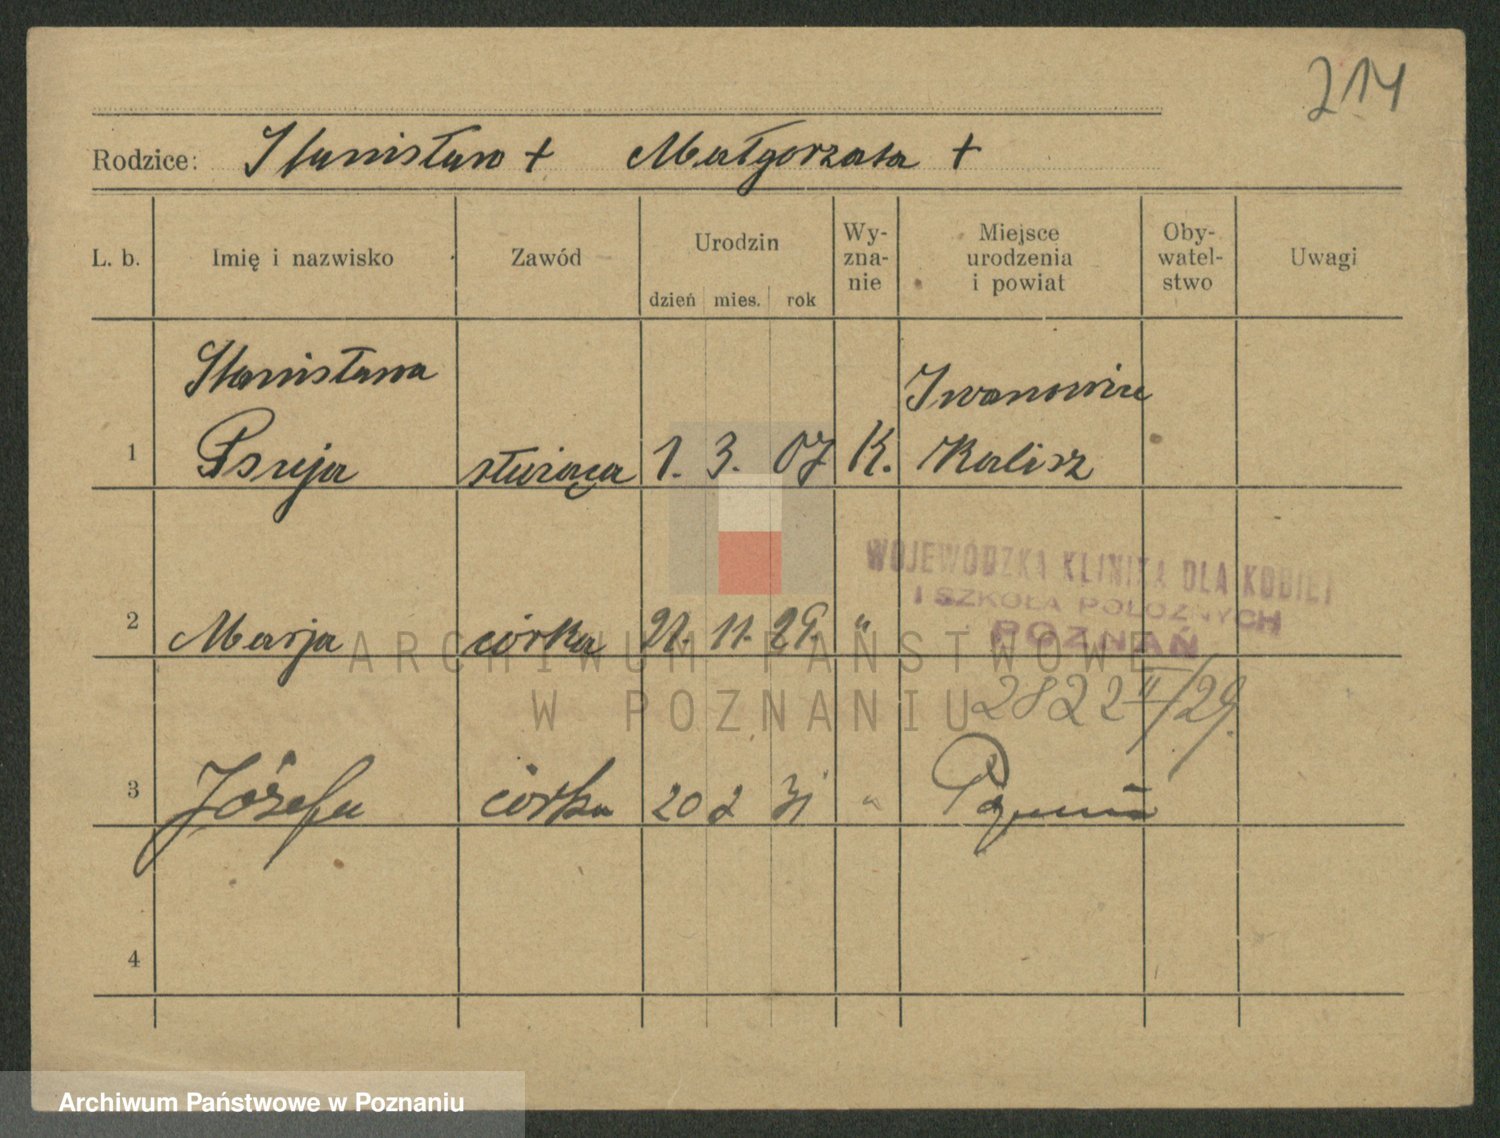 214
Rodzice: Stanisław + Małgorzata +
L. b. Imię i nazwisko Zawód Urodzin dzień mies. rok Wy-zna-nie Miejsce urodzenia i powiat Oby-watel-stwo Uwagi
Stanisława Iwanowice
1 Psuja służąca 1. 3. 07 K. Kalisz
WOJEWÓDZKA KLINIKA DLA KOBIET
I SZKOŁA POŁOŻNYCH
POZNAŃ
2 Marja córka 21. 11. 29. "
ARCHIWUM PAŃSTWOWE
W POZNANIU
2822 II/29.
3 Józefa córka 20 2 31 "
4
Archiwum Państwowe w Poznaniu